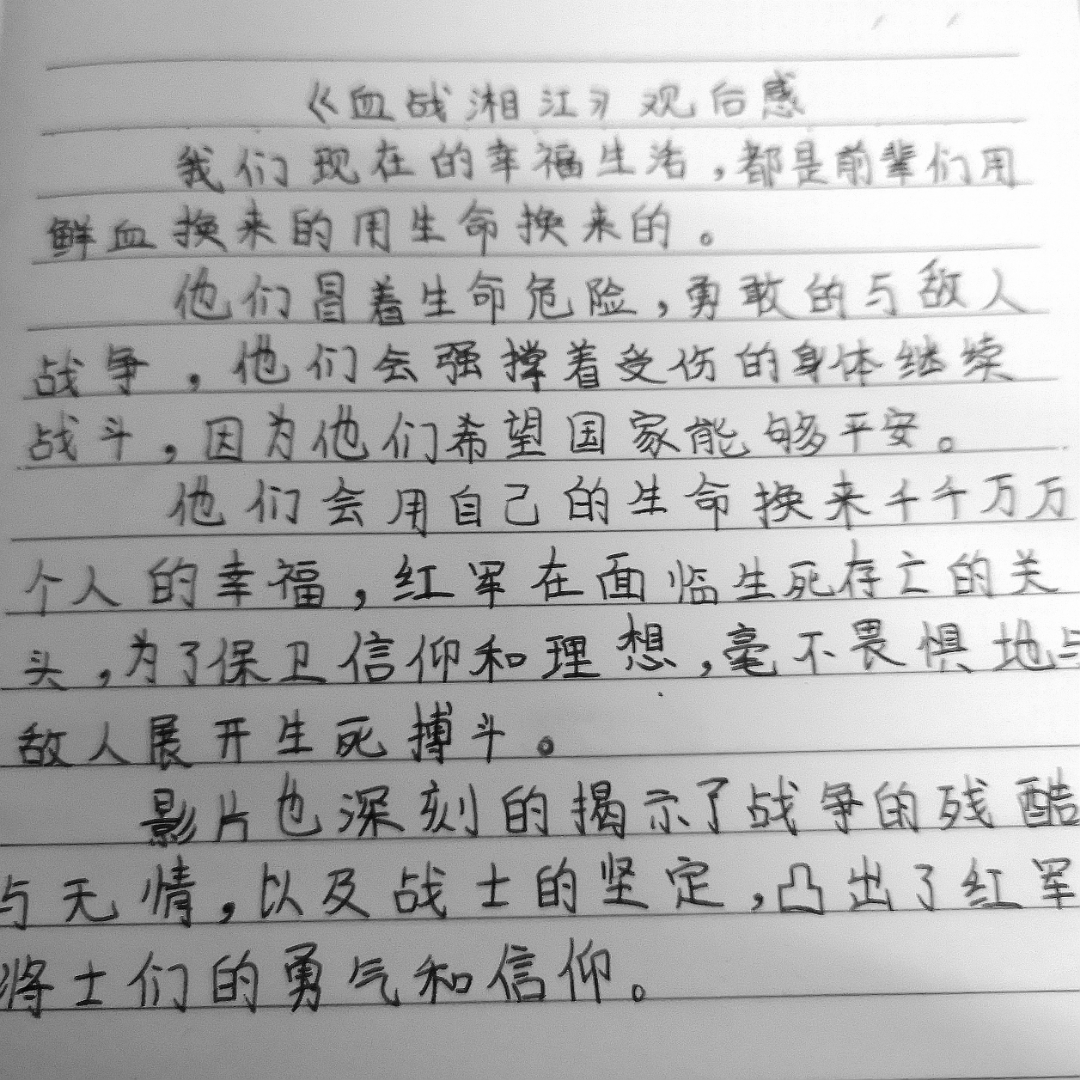 《血战湘江》观后感
我们现在的幸福生活，都是前辈们用
鲜血换来的用生命换来的。
他们冒着生命危险，勇敢的与敌人
战争，他们会强撑着受伤的身体继续
战斗，因为他们希望国家能够平安。
他们会用自己的生命换来千千万万
个人的幸福，红军在面临生死存亡的关
头，为了保卫信仰和理想，毫不畏惧地与
敌人展开生死搏斗。
影片也深刻的揭示了战争的残酷
与无情，以及战士的坚定，凸出了红军
将士们的勇气和信仰。